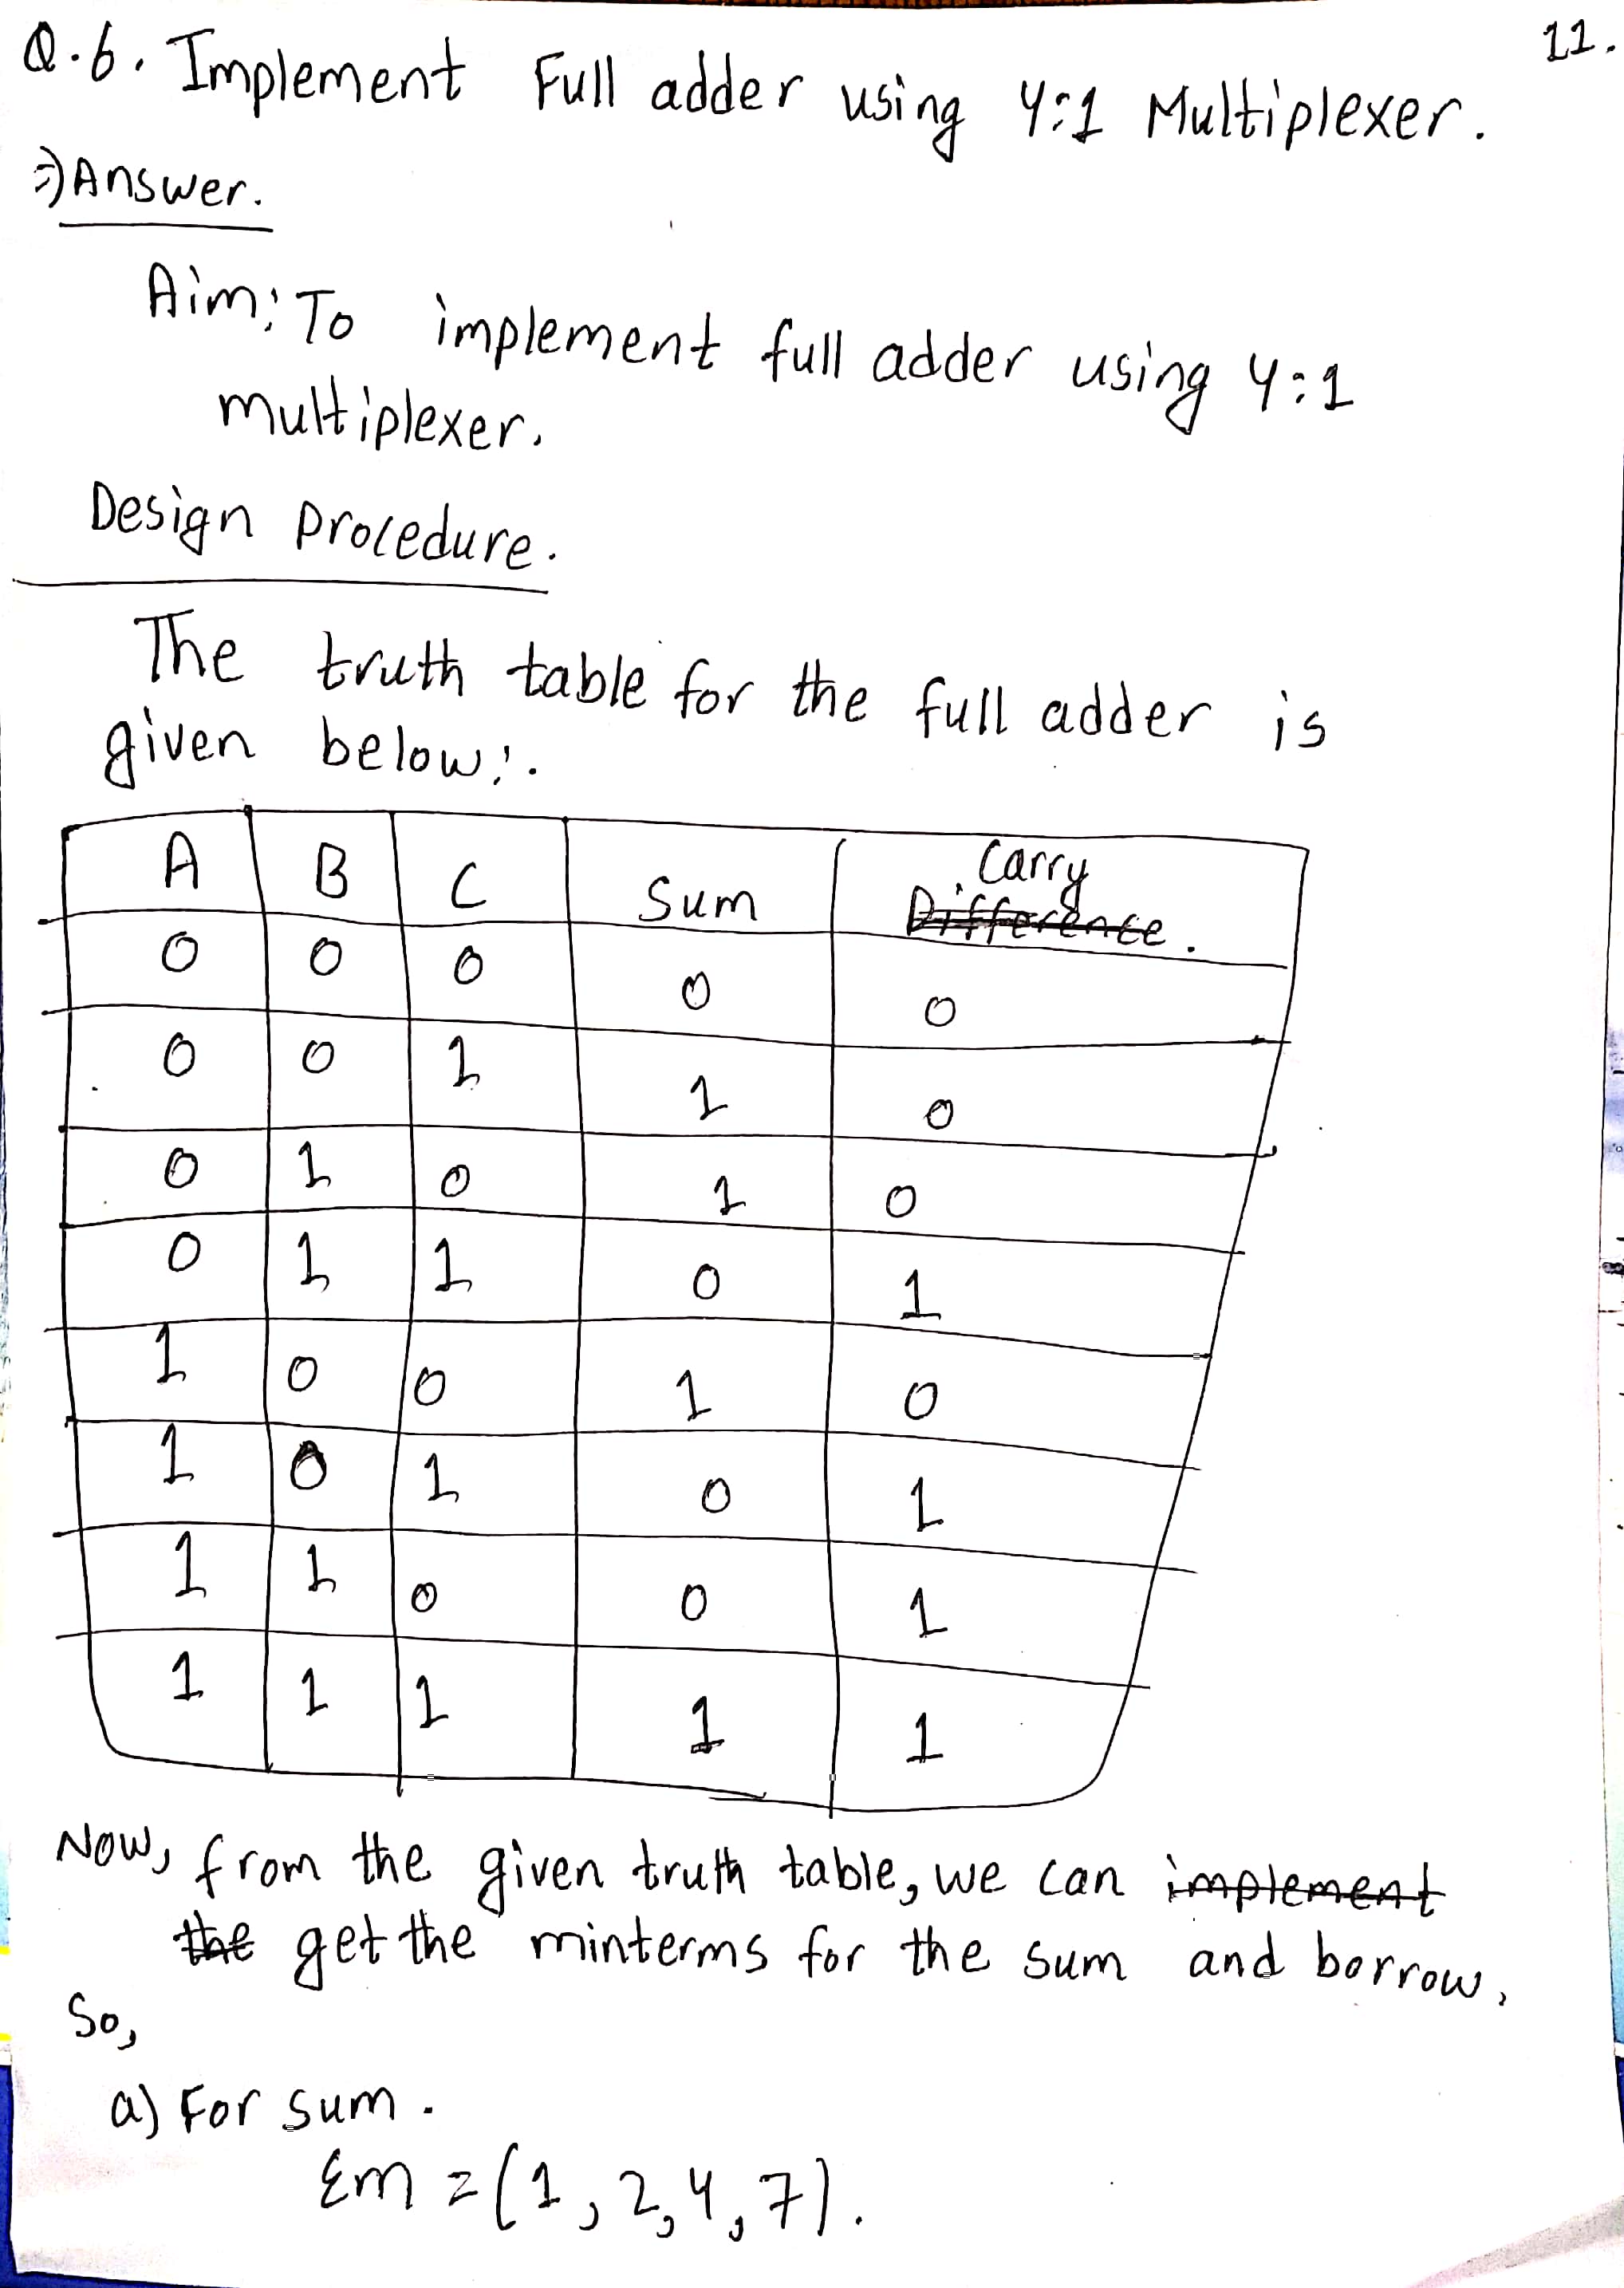 11.
Q.6. Implement Full adder using 4:1 Multiplexer.
=) Answer.
Aim: To implement full adder using 4:1
multiplexer.
Design Procedure.
The truth table for the full adder is
given below:.
A B C Sum Carry Difference.
0 0 0 0 0
0 0 1 1 0
0 1 0 1 0
0 1 1 0 1
1 0 0 1 0
1 0 1 0 1
1 1 0 0 1
1 1 1 1 1
Now, from the given truth table, we can implement
the get the minterms for the sum and borrow.
So,
a) For sum.
Σm = (1, 2, 4, 7).